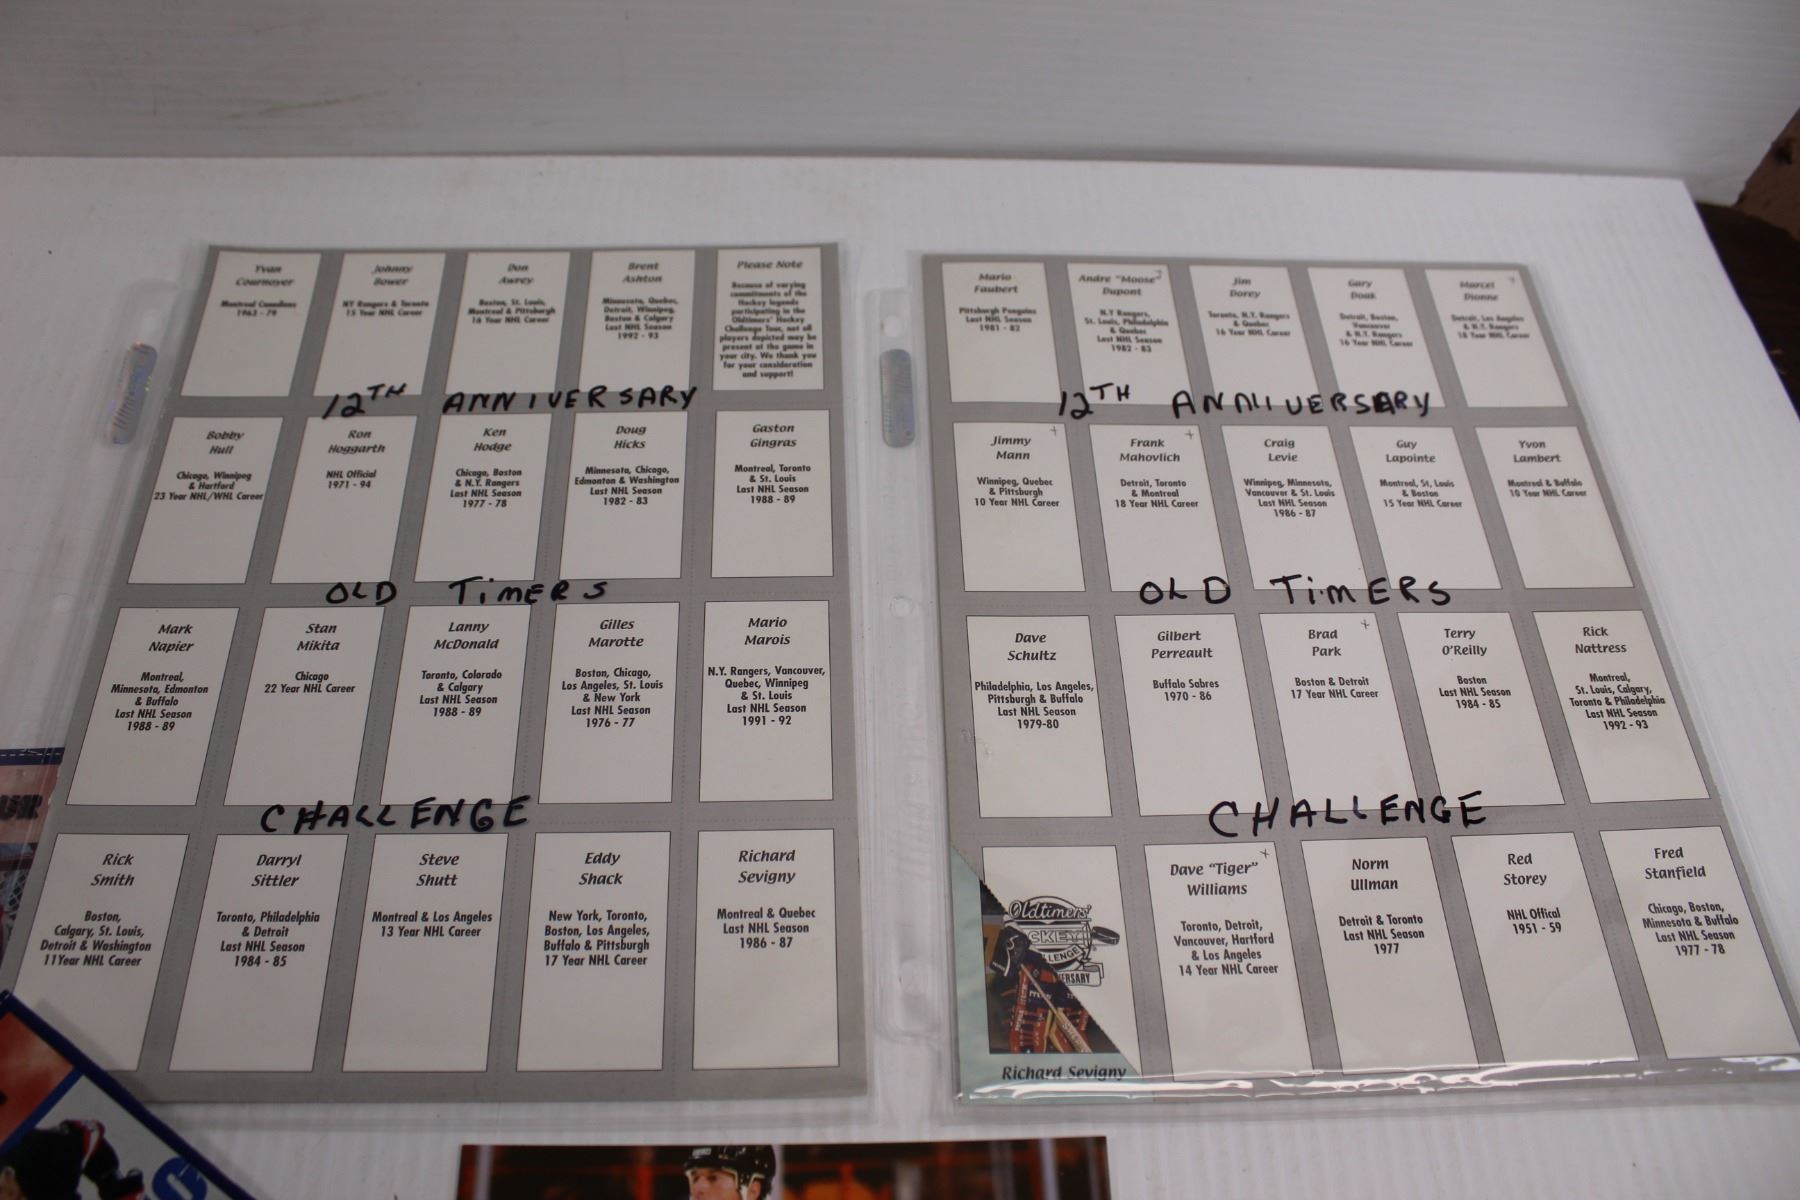 Yvan
Cournoyer
Montreal Canadiens
1963 - 79
Johnny
Bower
NY Rangers & Toronto
15 Year NHL Career
Don
Awrey
Boston, St. Louis,
Montreal & Pittsburgh
16 Year NHL Career
Brent
Ashton
Minnesota, Quebec,
Detroit, Winnipeg,
Boston & Calgary
Last NHL Season
1992 - 93
Please Note
Because of varying
commitments of the
Hockey legends
participating in the
Oldtimers' Hockey
Challenge Tour, not all
players depicted may be
present at the game in
your city. We thank you
for your consideration
and support!
12TH ANNIVERSARY
Bobby
Hull
Chicago, Winnipeg
& Hartford
23 Year NHL/WHL Career
Ron
Hoggarth
NHL Official
1971 - 94
Ken
Hodge
Chicago, Boston
& N.Y. Rangers
Last NHL Season
1977 - 78
Doug
Hicks
Minnesota, Chicago,
Edmonton & Washington
Last NHL Season
1982 - 83
Gaston
Gingras
Montreal, Toronto
& St. Louis
Last NHL Season
1988 - 89
OLD TiMERS
Mark
Napier
Montreal,
Minnesota, Edmonton
& Buffalo
Last NHL Season
1988 - 89
Stan
Mikita
Chicago
22 Year NHL Career
Lanny
McDonald
Toronto, Colorado
& Calgary
Last NHL Season
1988 - 89
Gilles
Marotte
Boston, Chicago,
Los Angeles, St. Louis
& New York
Last NHL Season
1976 - 77
Mario
Marois
N.Y. Rangers, Vancouver,
Quebec, Winnipeg
& St. Louis
Last NHL Season
1991 - 92
CHALLENGE
Rick
Smith
Boston,
Calgary, St. Louis,
Detroit & Washington
11Year NHL Career
Darryl
Sittler
Toronto, Philadelphia
& Detroit
Last NHL Season
1984 - 85
Steve
Shutt
Montreal & Los Angeles
13 Year NHL Career
Eddy
Shack
New York, Toronto,
Boston, Los Angeles,
Buffalo & Pittsburgh
17 Year NHL Career
Richard
Sevigny
Montreal & Quebec
Last NHL Season
1986 - 87
Mario
Faubert
Pittsburgh Penguins
Last NHL Season
1981 - 82
Andre "Moose"
Dupont
N.Y Rangers,
St. Louis, Philadelphia
& Quebec
Last NHL Season
1982 - 83
Jim
Dorey
Toronto, N.Y. Rangers
& Quebec
16 Year NHL Career
Gary
Doak
Detroit, Boston,
Vancouver
& N.Y. Rangers
16 Year NHL Career
Marcel
Dionne
Detroit, Los Angeles
& N.Y. Rangers
18 Year NHL Career
12TH ANNIVERSARY
Jimmy
Mann
Winnipeg, Quebec
& Pittsburgh
10 Year NHL Career
Frank
Mahovlich
Detroit, Toronto
& Montreal
18 Year NHL Career
Craig
Levie
Winnipeg, Minnesota,
Vancouver & St. Louis
Last NHL Season
1986 - 87
Guy
Lapointe
Montreal, St, Louis
& Boston
15 Year NHL Career
Yvon
Lambert
Montreal & Buffalo
10 Year NHL Career
OLD TiMERS
Dave
Schultz
Philadelphia, Los Angeles,
Pittsburgh & Buffalo
Last NHL Season
1979-80
Gilbert
Perreault
Buffalo Sabres
1970 - 86
Brad
Park
Boston & Detroit
17 Year NHL Career
Terry
O'Reilly
Boston
Last NHL Season
1984 - 85
Rick
Nattress
Montreal,
St. Louis, Calgary,
Toronto & Philadelphia
Last NHL Season
1992 - 93
CHALLENGE
Oldtimers'
Richard Sevigny
Dave "Tiger"
Williams
Toronto, Detroit,
Vancouver, Hartford
& Los Angeles
14 Year NHL Career
Norm
Ullman
Detroit & Toronto
Last NHL Season
1977
Red
Storey
NHL Offical
1951 - 59
Fred
Stanfield
Chicago, Boston,
Minnesota & Buffalo
Last NHL Season
1977 - 78